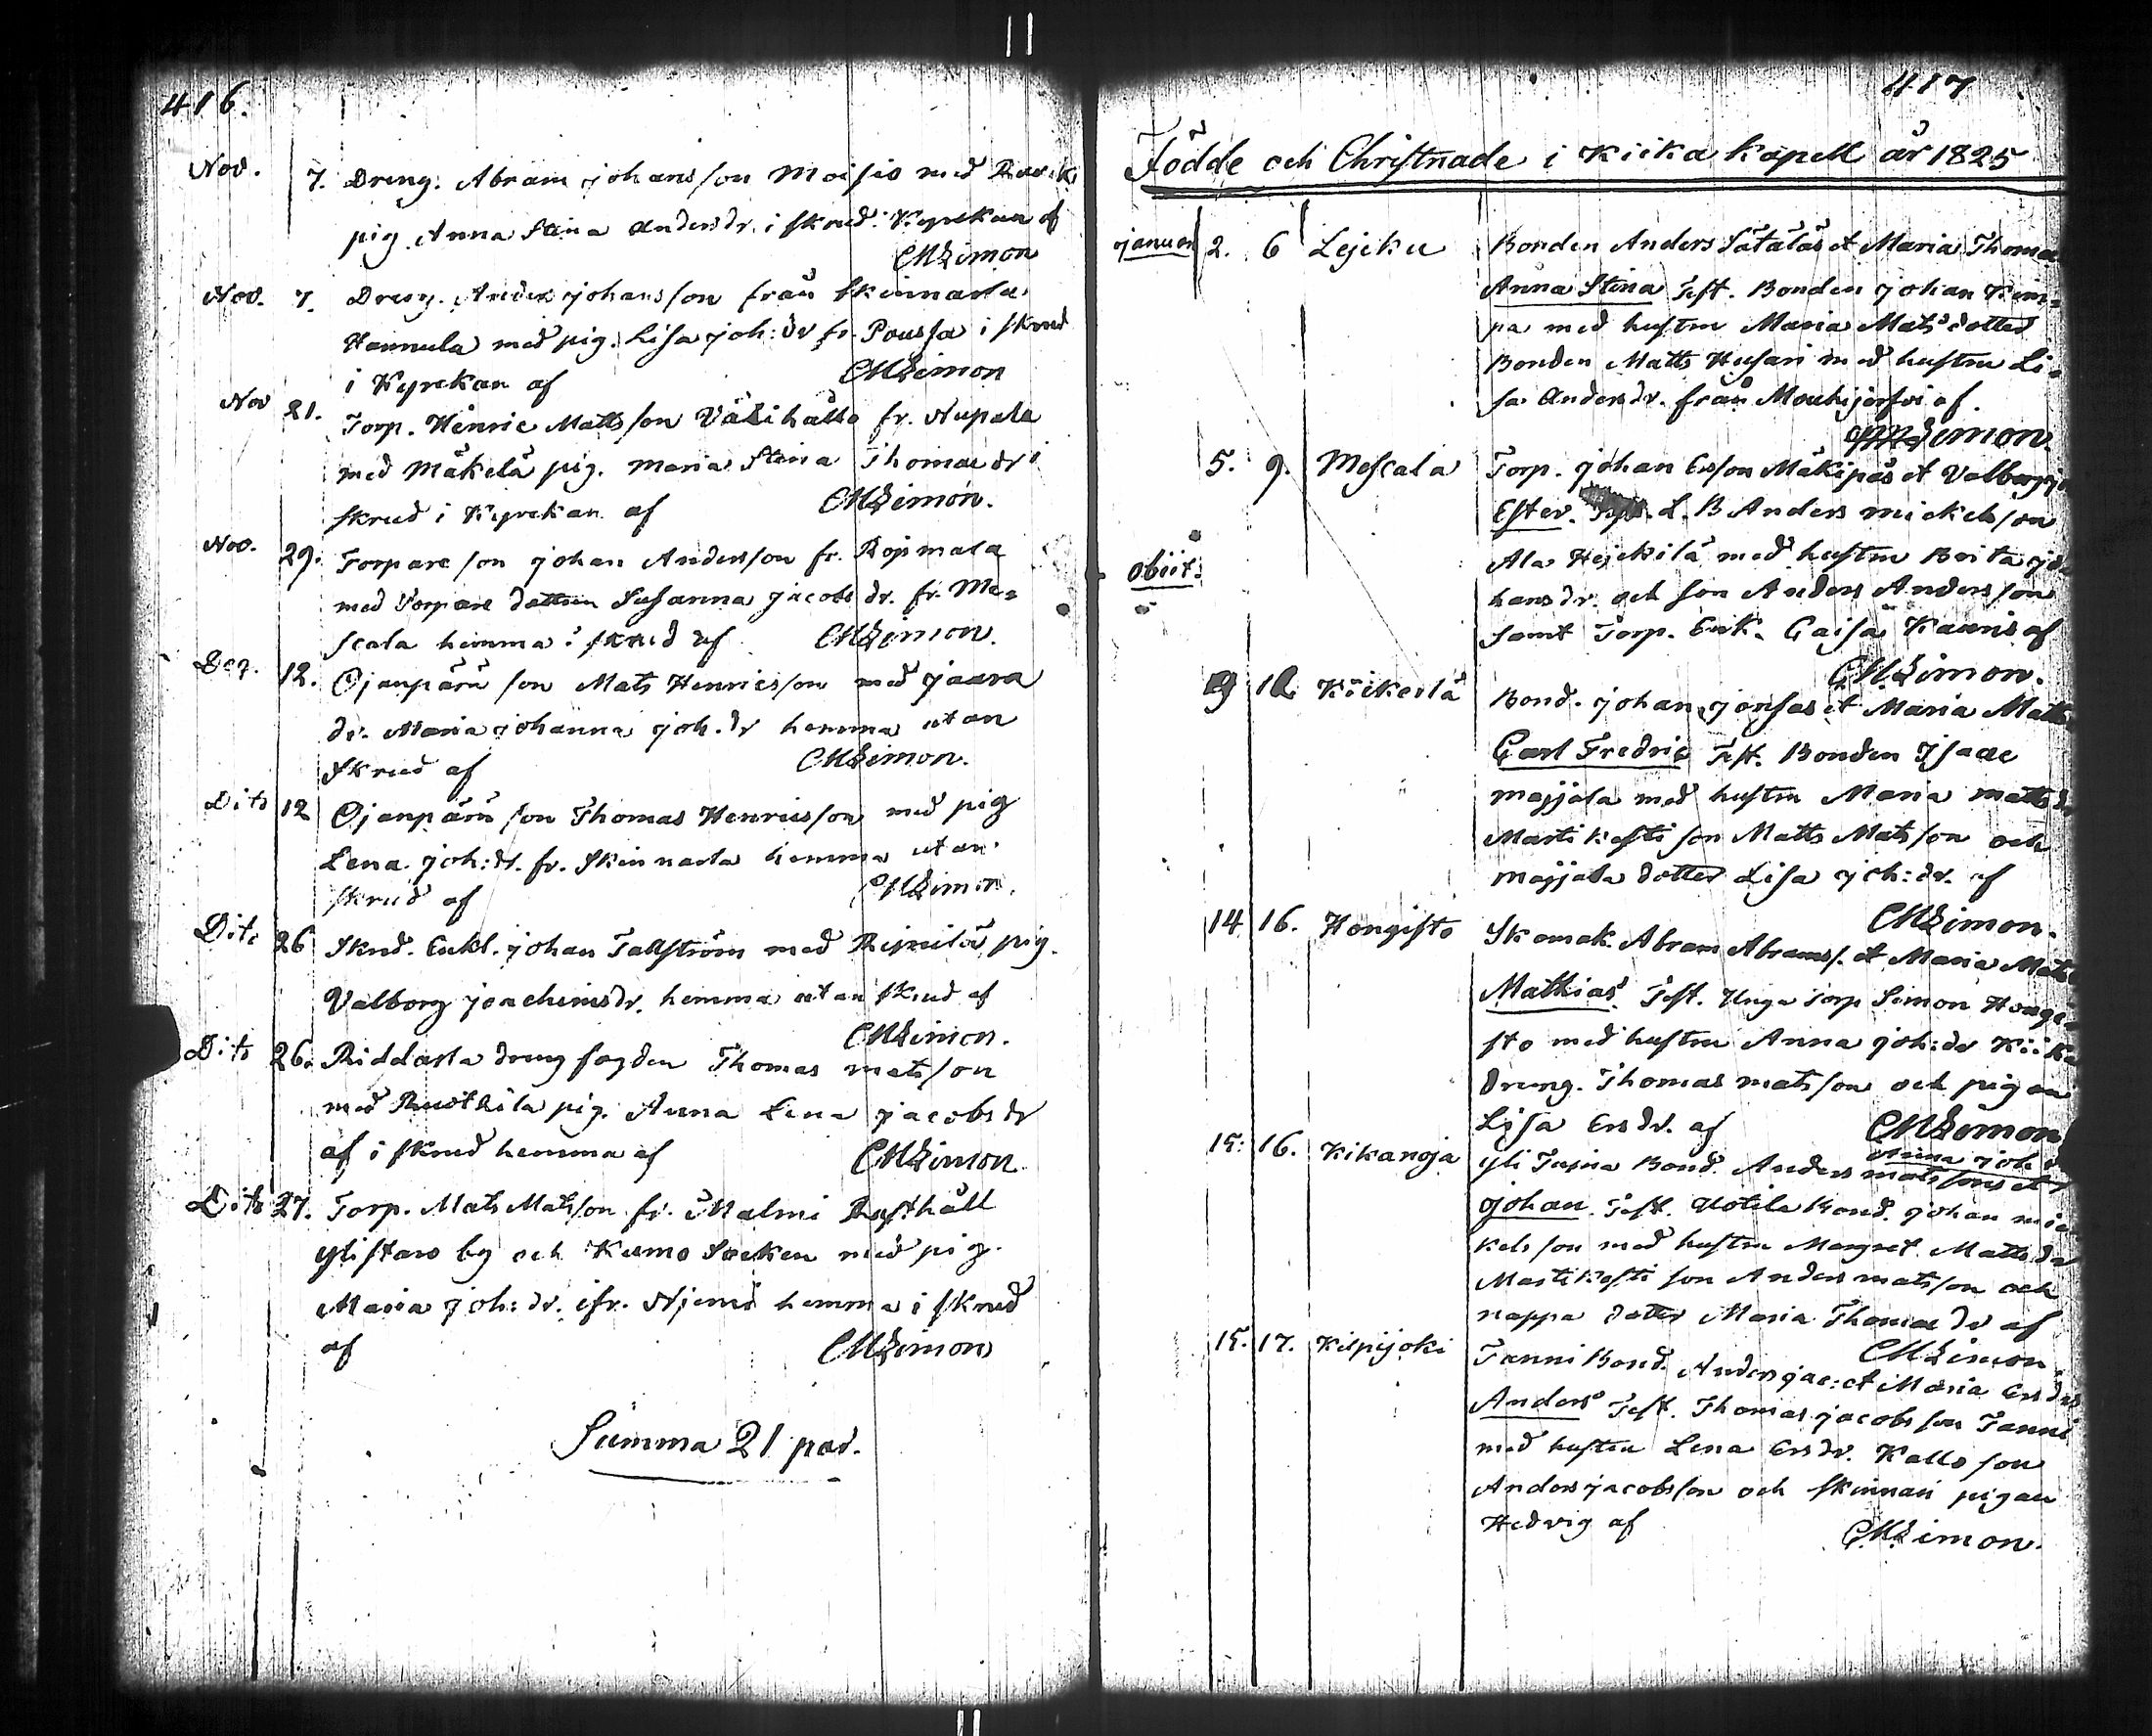 416.
Nov. 7. Dreng. Abram Johansson Moisio med
pig. Anna Stina Andersdr. i skrud i Kyrckan af
CMZimon
Nov. 7. Dreng. Anders Johansson från Skinnarla
Hannula med pig. Lisa Joh:dr fr. Poussa i skrud
i Kyrckan af CMZimon
Nov 21. Torp. Henric Mattsson Välihalko fr. Nupala
med Mäkelä pig. Maria Stina Thomae dr i
skrud i Kyrckan af CMZimon.
Nov. 29. Torpare son Johan Andersson fr. Roismala
med Torpare dottren Susanna Jacobs dr. fr. Me=
scala hemma i skrud af CMZimon.
Dec. 12. Ojanpärü son Mats Henricsson med Jaara
dr. Maria Johanna Joh. dr hemma utan
skrud af CMZimon.
Dito 12 Ojanpärü son Thomas Henricsson med pig
Lena Joh:dr. fr. Skinnarla hemma utan
skrud af CMZimon.
Dito 26 Skrd. Enkl. Johan Tallström med pig.
Valborg Joachimsdr. hemma utan skrud af
CMZimon.
Dito 26. Riddarla drengfogden Thomas Matsson
med pig. Anna Lena Jacobs dr
af i skrud hemma af CMZimon.
Dito 27. Torp. Mats Matsson fr. Malmi Rusthåll
Ylistaro by och Kumo Socken med pig.
Maria Joh:dr. ifr. hemma i skrud
af CMZimon
Summa 21 par.
417
Födde och Christnade i Kiika kapell år 1825
Januari 2. 6 Lejcku Bonden Anders Sätäläs et Maria Thomae
Anna Stina Test. Bonden Johan Kem=
pa med hustru Maria Mats dotter
Bonden Matts Husari med hustru Li=
sa Andersdr. från Mouhijerfvi af
CMZimon.
5. 9. Mescala Torp. Johan Ersson Mäkipäs et Valborg
Ester. L. B Anders Mickelsson
obiit. Ala Hejckilä med hustru Brita Jo
hans dr. och son Anders Andersson
samt Torp. Enk. Caisa Kauris af
CMZimon.
9 12 Kiikerlä Bond. Johan Jonsas et Maria Matts
Carl Fredric Test. Bonden Isaac
Majjala med hustru Maria Mattsdr
Martikesti son Matts Matsson och
Majjala dotter Lisa Joh:dr. af
CMZimon.
14 16. Hongisto Skomak. Abram Abrams. et Maria Mats
Mathias. Test. Unga Torp Simon Hongi=
sto med hustru Anna Joh:dr Kiika
Dreng. Thomas Matsson och pigan
Lisa Ersdr. af CMZimon
15. 16. Kikanoja Yli Bond. Anders Matssons et Anna Joh dr
Johan. Test. Uotila Bond. Johan Mic
kelsson med hustru Margret Matts dr
Martikesti son Anders Matsson och
nappa dotter Maria Thomae dr af
CMZimon
15. 17. Kilpijoki Tanni Bond. Anders Jac: et Maria Ers dr
Anders Test. Thomas Jacobsson Tanni
med hustru Lena Ersdr. Kallo son
Anders Jacobsson och Skinnari pigan
Hedvig af CMZimon.